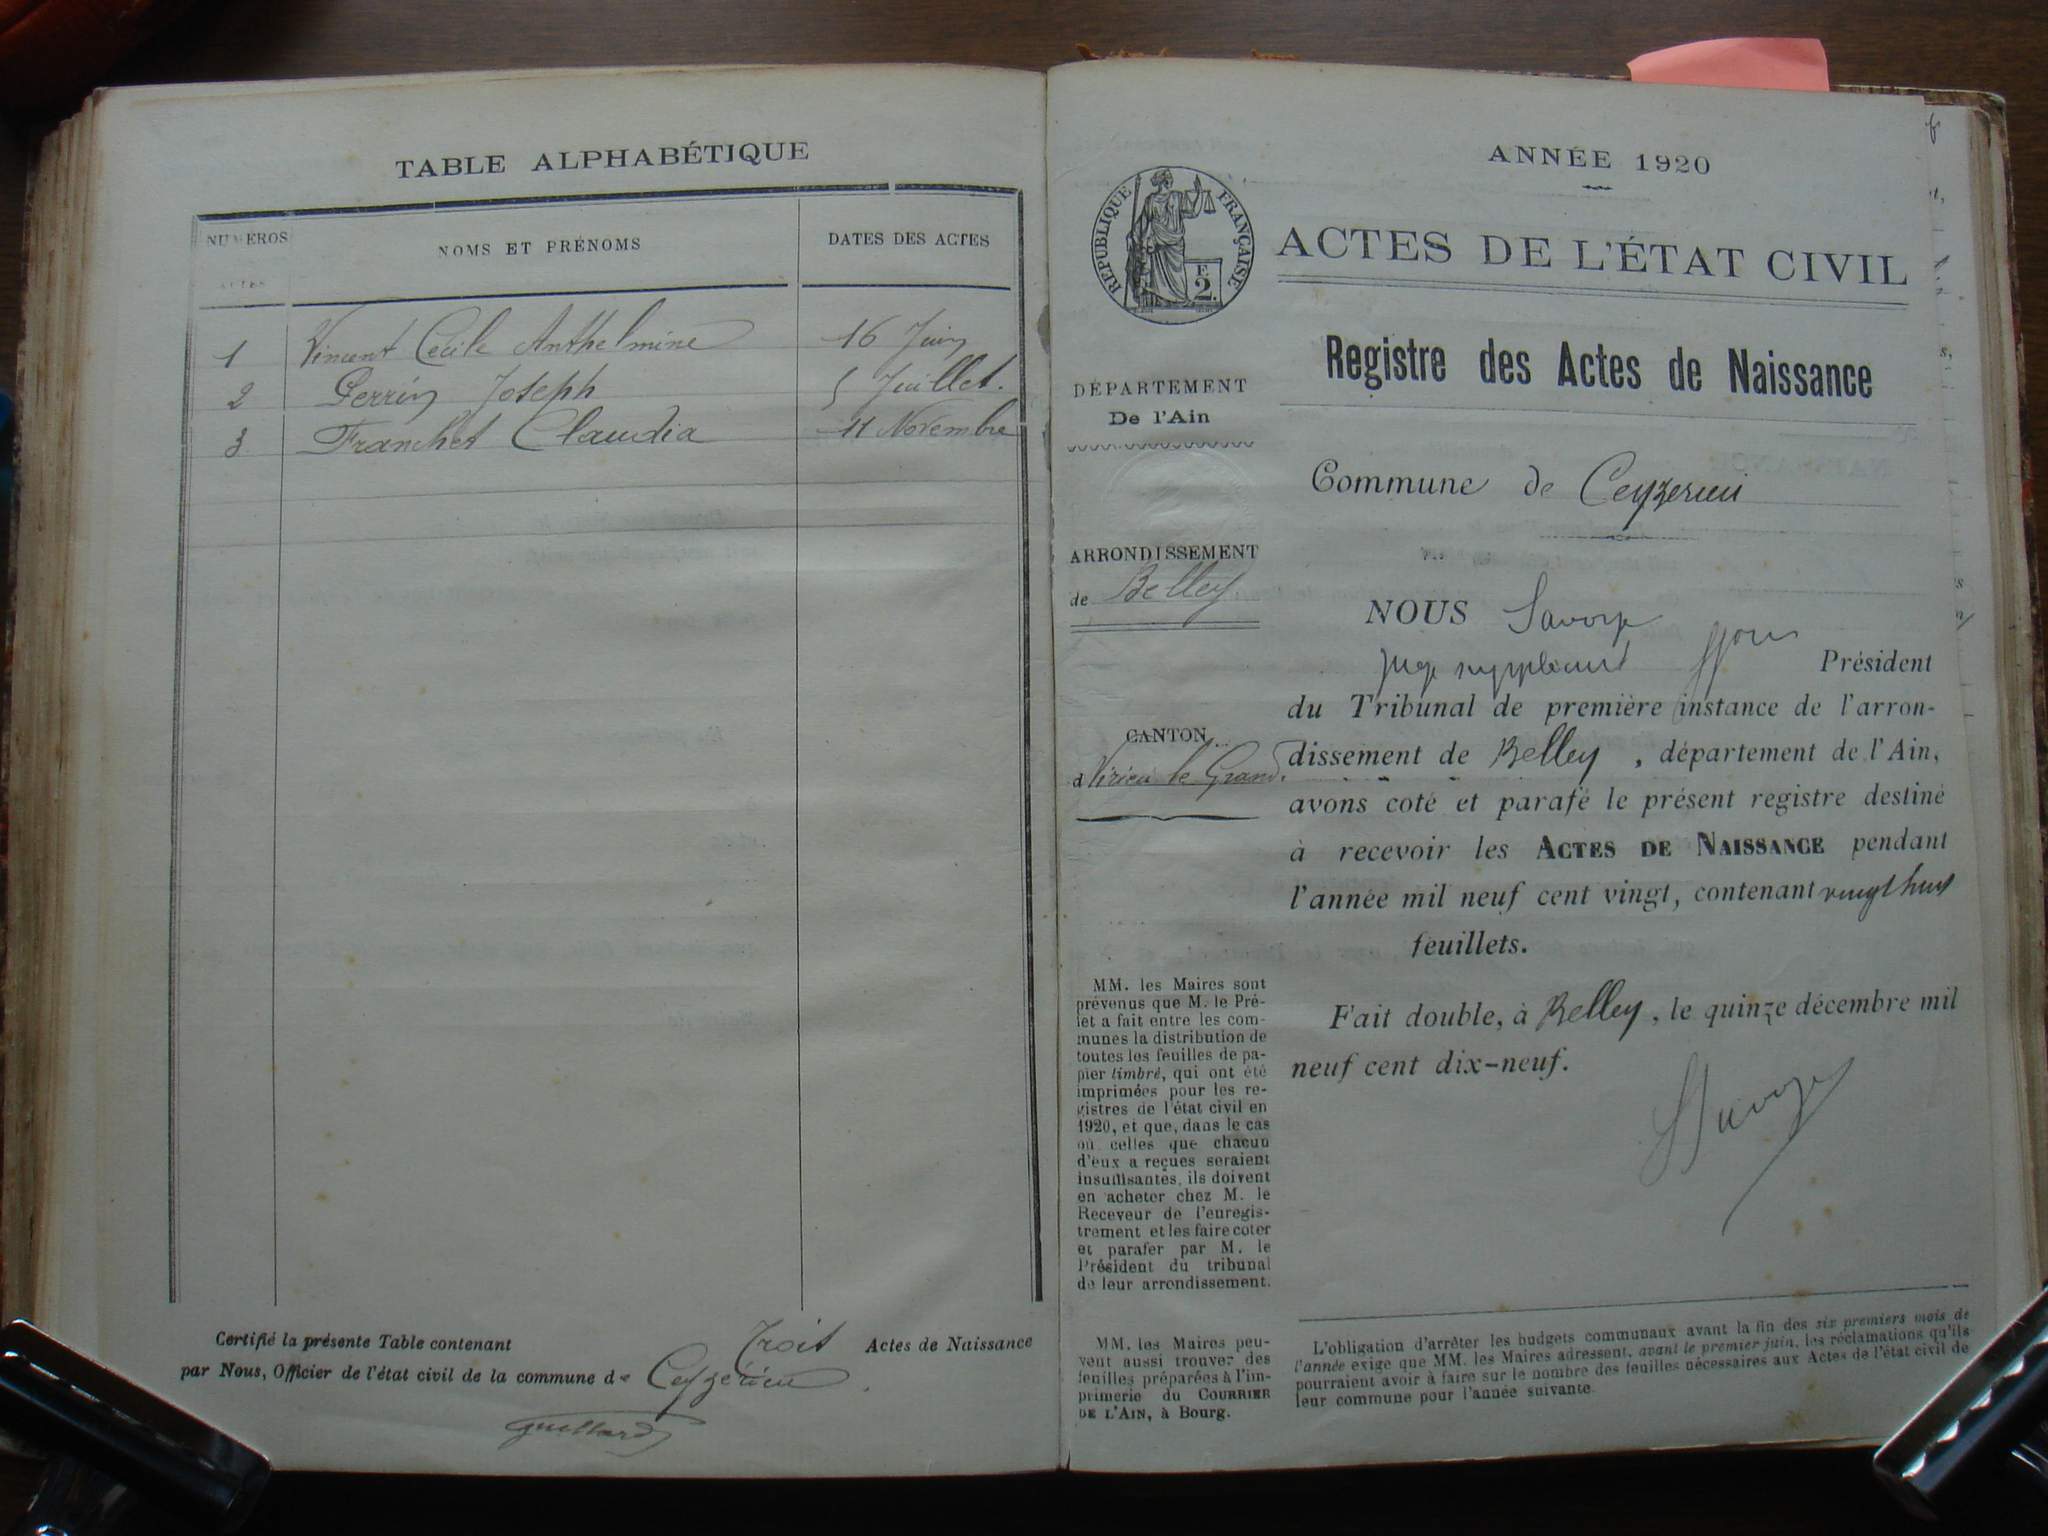 TABLE ALPHABÉTIQUE
NUMÉROS
NOMS ET PRÉNOMS
DATES DES ACTES
1 Vincent Cécile Anthelmine 16 Juin
2 Perrin Joseph 5 Juillet.
3 Franchet Claudia 11 Novembre
Certifié la présente Table contenant Trois Actes de Naissance
par Nous, Officier de l'état civil de la commune de Ceyzérieu.
ANNÉE 1920
RÉPUBLIQUE FRANÇAISE
2.
ACTES DE L'ÉTAT CIVIL
Registre des Actes de Naissance
DÉPARTEMENT
De l'Ain
ARRONDISSEMENT
de Belley
CANTON
d Virieu le Grand.
MM. les Maires sont
prévenus que M. le Pré-
fet a fait entre les com-
munes la distribution de
toutes les feuilles de pa-
pier timbré, qui ont été
imprimées pour les re-
gistres de l'état civil en
1920, et que, dans le cas
où celles que chacun
d'eux a reçues seraient
insuffisantes, ils doivent
en acheter chez M. le
Receveur de l'enregis-
trement et les faire coter
et parafer par M. le
Président du tribunal
de leur arrondissement.
MM. les Maires peu-
vent aussi trouver des
feuilles préparées à l'im-
primerie du COURRIER
DE L'AIN, à Bourg.
Commune de Ceyzerieu
NOUS Savoye
juge suppléant Président
du Tribunal de première instance de l'arron-
dissement de Belley, département de l'Ain,
avons coté et parafé le présent registre destiné
à recevoir les ACTES DE NAISSANCE pendant
l'année mil neuf cent vingt, contenant vingt huit
feuillets.
Fait double, à Belley, le quinze décembre mil
neuf cent dix-neuf.
Savoye
L'obligation d'arrêter les budgets communaux avant la fin des six premiers mois de
l'année exige que MM. les Maires adressent, avant le premier juin, les réclamations qu'ils
pourraient avoir à faire sur le nombre des feuilles nécessaires aux Actes de l'état civil de
leur commune pour l'année suivante.